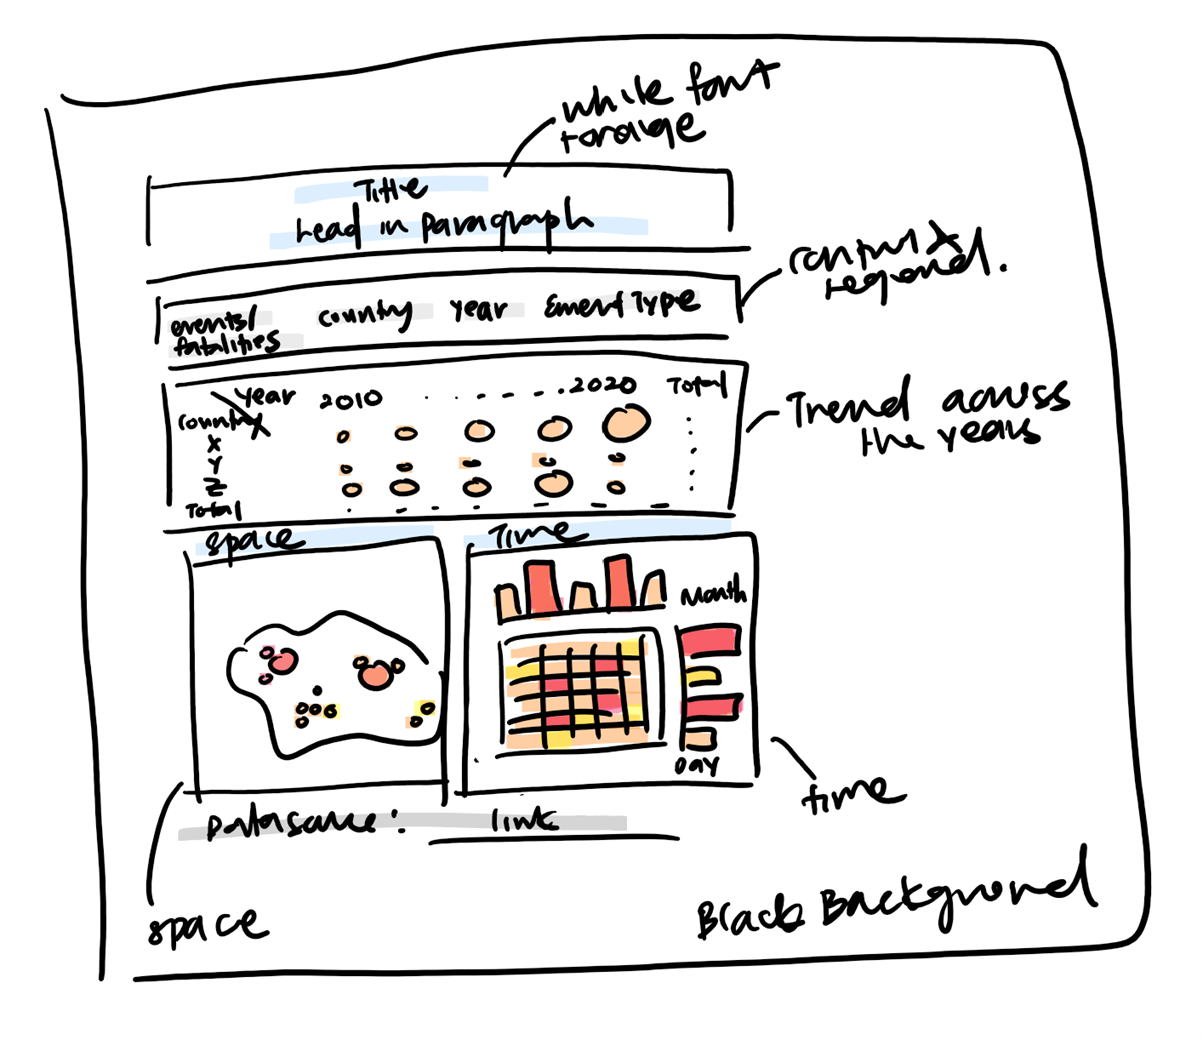 while font
+ orange
Title
Lead in paragraph
control &
regional.
events/
fatalities
country
year
Event Type
Year
Country
2010
2020
Total
X
Y
Z
Total
Trend across
the years
space
Time
Month
Day
time
Data source:
link
space
Black Background